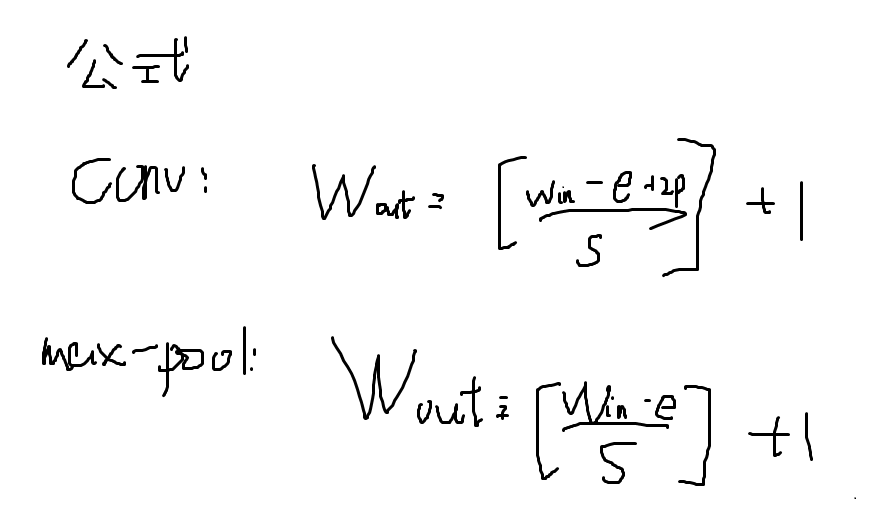 公式
Conv: Wout = [(Win - e + 2p) / S] + 1
max-pool: Wout = [(Win - e) / S] + 1